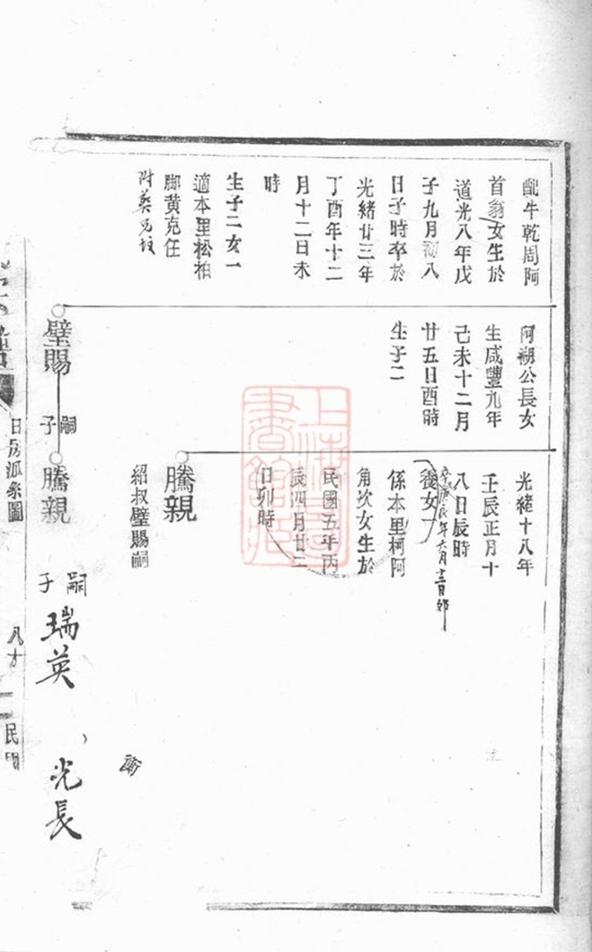 配牛乾周阿
首翁女生於
道光八年戊
子九月初八
日子時卒於
光緒廿三年
丁酉年十二
月十二日未
時
生子二女一
適本里松柏
腳黃克任
附葬
阿湖公長女
生咸豐九年
己未十二月
廿五日酉時
生子二
璧賜
嗣子
騰親
光緒十八年
壬辰正月十
八日辰時
年六月
養女一
係本里柯阿
角次女生於
民國五年丙
辰四月廿二
日卯時
騰親
紹叔璧賜嗣
嗣子
瑞英
光長
日房派系圖
民國
上海圖書館藏